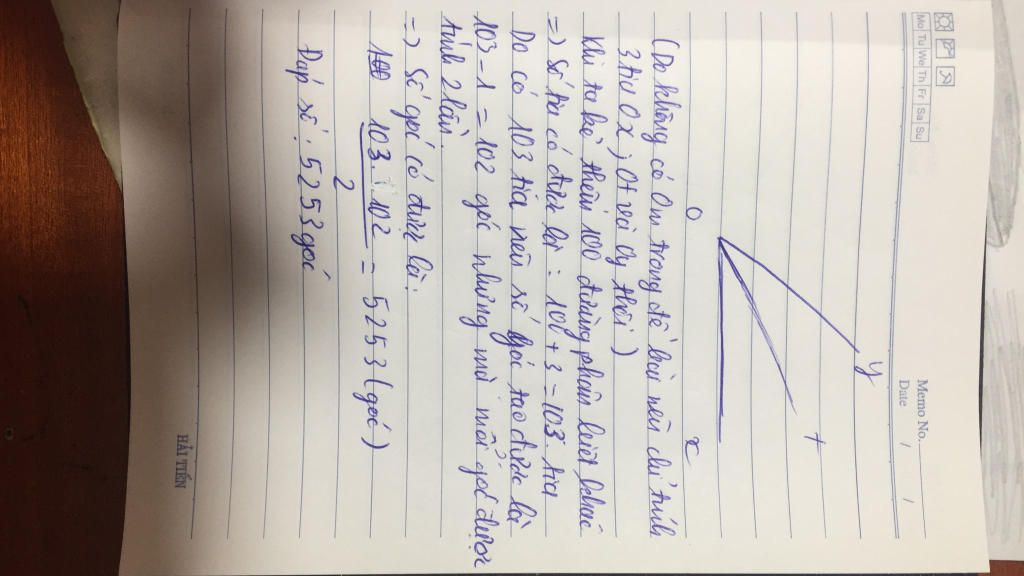 Memo No.
Mo Tu We Th Fr Sa Su
Date / /
y
t
O
x
(Do không có Om trong đề bài nên chỉ tính
3 tia Ox, Ot và Oy thôi)
Khi ta kẻ thêm 100 đường phân biệt
=) Số tia có được là : 100 + 3 = 103 tia
Do có 103 tia nên số góc tạo được là
103 - 1 = 102 góc nhưng mà mỗi góc được
tính 2 lần.
=) Số góc có được là :
103. 102 = 5253 (góc)
2
Đáp số : 5253 góc
HẢI TIẾN